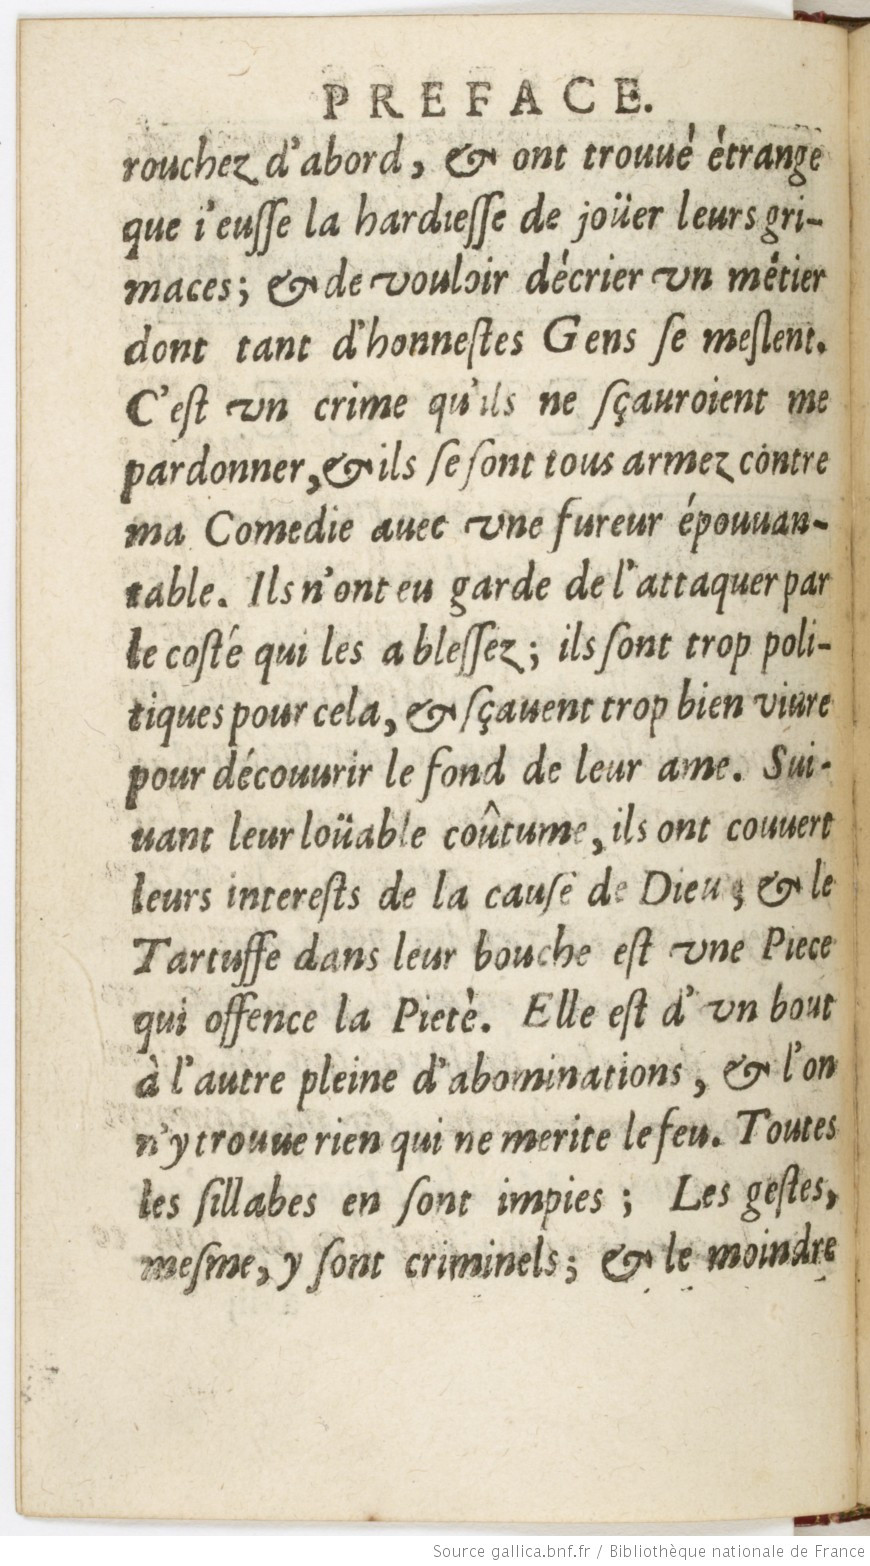 PREFACE.
rouchez d'abord, & ont trouuè ètrange
que i'eusse la hardiesse de joüer leurs gri-
maces; & de vouloir dècrier vn mêtier
dont tant d'honnestes Gens se meslent.
C'est vn crime qu'ils ne sçauroient me
pardonner, & ils se sont tous armez contre
ma Comedie auec vne fureur épouuan-
table. Ils n'ont eu garde de l'attaquer par
le costé qui les a blessez; ils sont trop poli-
tiques pour cela, & sçauent trop bien viure
pour découurir le fond de leur ame. Sui-
uant leur loüable coûtume, ils ont couuert
leurs interests de la cause de Dieu; & le
Tartuffe dans leur bouche est vne Piece
qui offence la Pietè. Elle est d'vn bout
à l'autre pleine d'abominations, & l'on
n'y trouue rien qui ne merite le feu. Toutes
les sillabes en sont impies; Les gestes,
mesme, y sont criminels; & le moindre
Source gallica.bnf.fr / Bibliothèque nationale de France